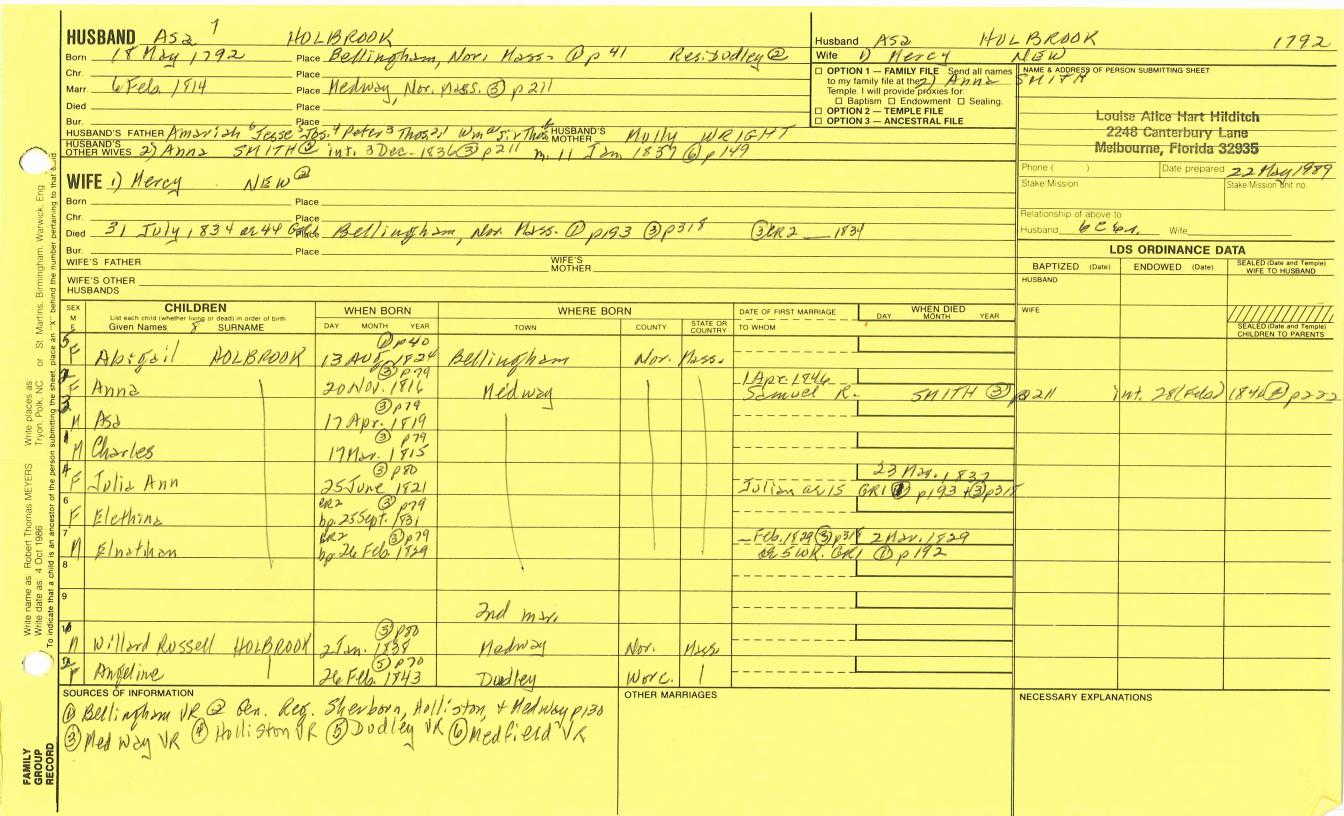 HUSBAND Asa 7 HOLBROOK
Born 18 May 1792 Place Bellingham, Nor. Mass. ① p 41 Res. Dudley ②
Chr. Place
Marr. 6 Feb. 1814 Place Medway, Nor. Mass. ③ p 211
Died Place
Bur. Place
HUSBAND'S FATHER Amariah 6 Jesse 5 Jos. 4 Peter 3 Thos. 2 HUSBAND'S MOTHER Molly WRIGHT
HUSBAND'S OTHER WIVES 2) Anna SMITH ③ int. 3 Dec. 1836 ③ p 211 m. 11 Jan 1837 ⑥ p 149
Husband Asa HOLBROOK 1792
Wife 1) Mercy NEW
2) Anna SMITH
☐ OPTION 1 — FAMILY FILE Send all names
to my family file at the
Temple. I will provide proxies for:
☐ Baptism ☐ Endowment ☐ Sealing.
☐ OPTION 2 — TEMPLE FILE
☐ OPTION 3 — ANCESTRAL FILE
NAME & ADDRESS OF PERSON SUBMITTING SHEET
Louise Alice Hart Hilditch
2248 Canterbury Lane
Melbourne, Florida 32935
Phone ( ) Date prepared 22 May 1989
Stake Mission Stake Mission unit no.
Relationship of above to
Husband 6C6r. Wife
WIFE 1) Mercy NEW ②
Born Place
Chr. Place
Died 31 July, 1834 or 44 Place Bellingham, Nor. Mass. ① p 193 ③ p 318 ③ GR2 __ 1834
Bur. Place
WIFE'S FATHER WIFE'S MOTHER
WIFE'S OTHER HUSBANDS
LDS ORDINANCE DATA
BAPTIZED (Date) ENDOWED (Date) SEALED (Date and Temple) WIFE TO HUSBAND
HUSBAND
WIFE
SEALED (Date and Temple) CHILDREN TO PARENTS
SEX M F
CHILDREN
List each child (whether living or dead) in order of birth
Given Names 8 SURNAME
WHEN BORN DAY MONTH YEAR
WHERE BORN TOWN COUNTY STATE OR COUNTRY
DATE OF FIRST MARRIAGE TO WHOM
WHEN DIED DAY MONTH YEAR
5 F Abigail HOLBROOK ① p 40 13 Aug. 1824 Bellingham Nor. Mass.
2 F Anna ③ p 79 20 Nov. 1816 Medway 1 Apr. 1846 Samuel R. SMITH ③ p 211 int. 28 (Feb.) 1846 p 222
3 M Asa ③ p 79 17 Apr. 1819
1 M Charles ③ p 79 17 Mar. 1815
4 F Julia Ann ③ p 80 25 June 1821 Julian ae 15 GR1 ① p 193 + ③ p 318 23 Mar. 1837
6 F Elethina CR2 ③ p 79 bp. 25 Sept. 1831
7 M Elnathan CR2 ③ p 79 bp. 26 Feb. 1829 _ Feb. 1829 ③ p 318 2 Mar. 1829 ae 5 wk. GR1 ① p 192
8
9
2nd mar.
1 M Willard Russell HOLBROOK ③ p 80 2 Jan. 1838 Medway Nor. Mass.
2 F Angeline ⑤ p 70 26 Feb. 1843 Dudley Worc.
SOURCES OF INFORMATION
① Bellingham VR ② Gen. Reg. Sherborn, Holliston, + Medway p 130
③ Medway VR ④ Holliston VR ⑤ Dudley VR ⑥ Medfield VR
OTHER MARRIAGES
NECESSARY EXPLANATIONS
FAMILY GROUP RECORD
Write name as: Robert Thomas MEYERS Write places as: Tryon, Polk, NC or St Martins, Birmingham, Warwick, Eng
Write date as: 4 Oct 1986
To indicate that a child is an ancestor of the person submitting the sheet, place an "X" behind the number pertaining to that child